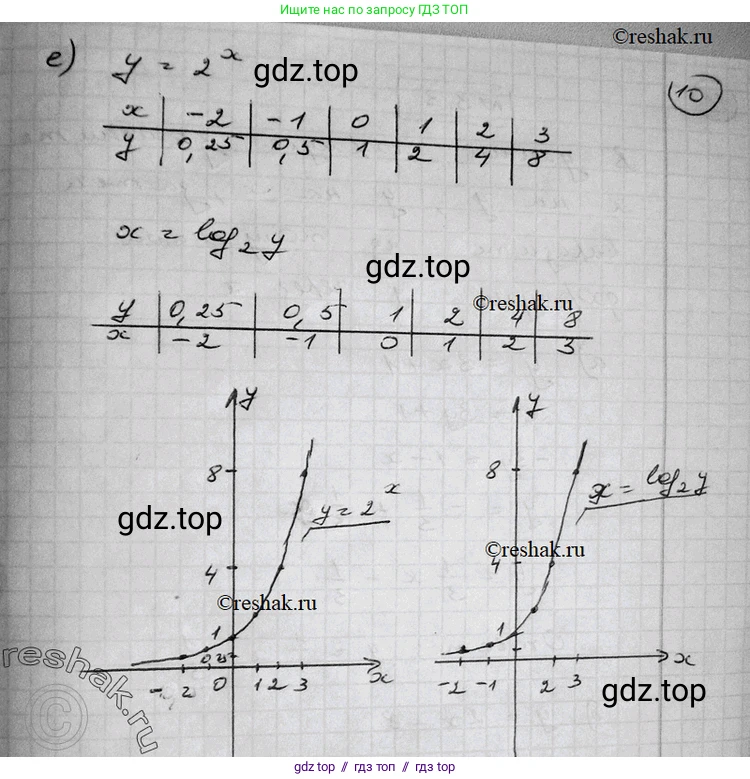 Ищите нас по запросу ГДЗ ТОП
©reshak.ru
е) y = 2^x gdz.top
10
x | -2 | -1 | 0 | 1 | 2 | 3
y | 0,25 | 0,5 | 1 | 2 | 4 | 8
x = log₂ y
gdz.top
©reshak.ru
y | 0,25 | 0,5 | 1 | 2 | 4 | 8
x | -2 | -1 | 0 | 1 | 2 | 3
y y
8 8
y = 2^x x = log₂ y
gdz.top
©reshak.ru
4 4
©reshak.ru
1 1
0,25
reshak.ru
-2 0 1 2 3 x -2 -1 2 3 x
©
gdz.top
gdz.top // гдз топ // gdz top